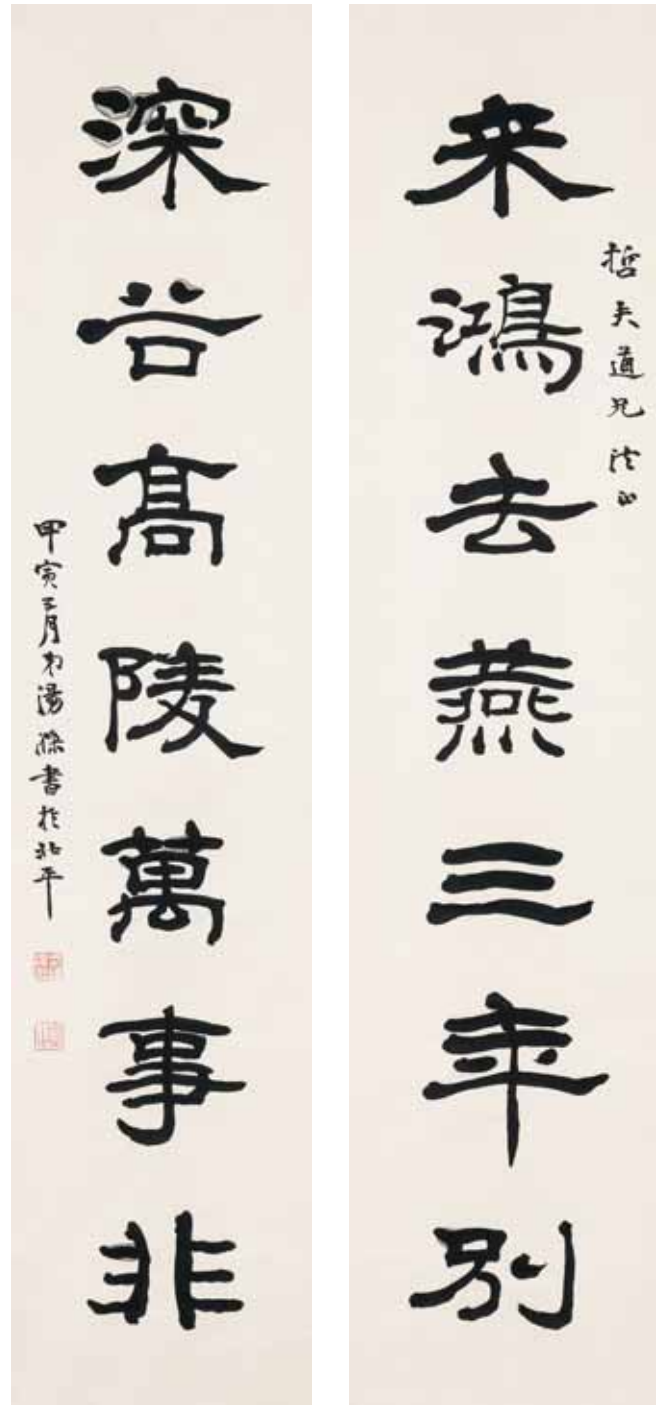 來鴻去燕三年別
哲夫道兄法正
深谷高陵萬事非
甲寅三月弟湯滌書於北平